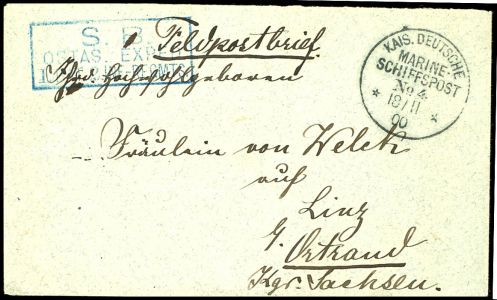 S. B.
OSTAS. EXPED.
Feldpostbrief.
KAIS. DEUTSCHE
MARINE-
SCHIFFSPOST
No 4
* 18/11 *
00
Ihrer Hochwohlgeboren
Fräulein von Welck
auf
Linz
b/ Ortrand
Kgr. Sachsen.